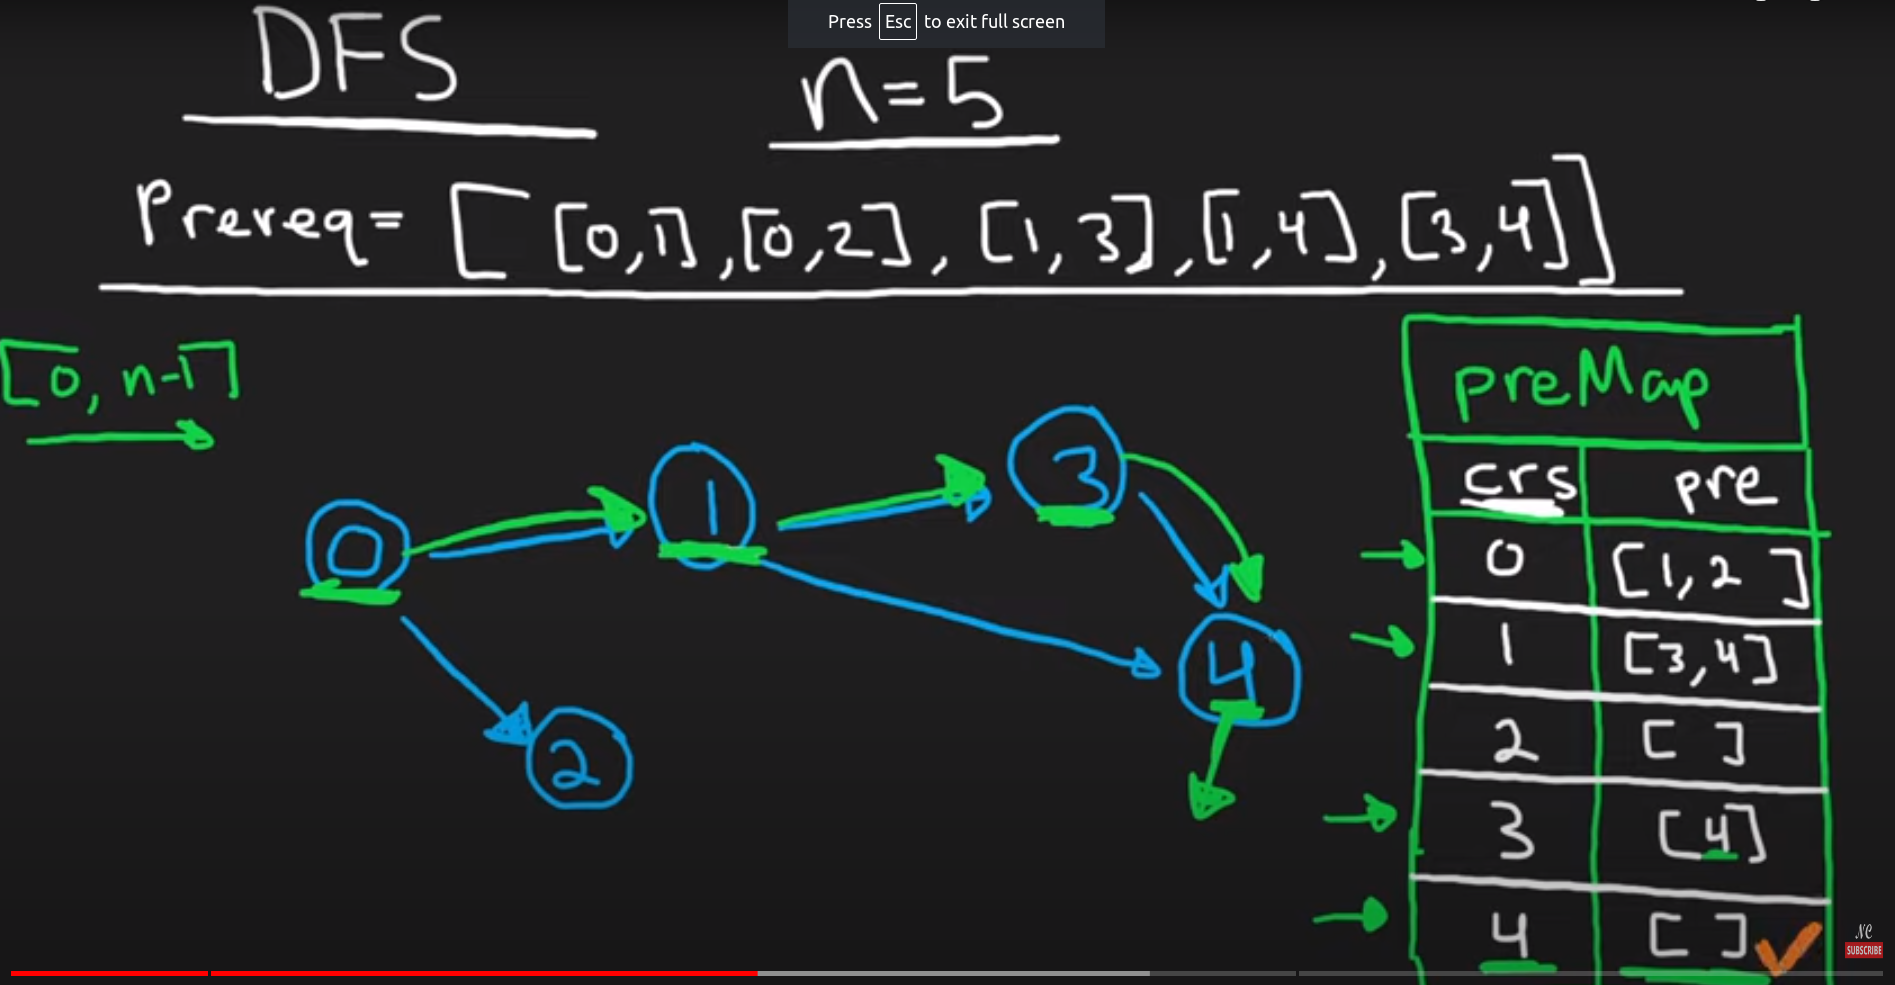 Press Esc to exit full screen
DFS
n=5
Prereq= [ [0,1] ,[0,2] , [1,3] ,[1,4] ,[3,4]]
[0, n-1]
preMap
crs pre
0 [1,2 ]
1 [3,4]
2 [ ]
3 [4]
4 [ ]
0
1
3
4
2
NC
SUBSCRIBE